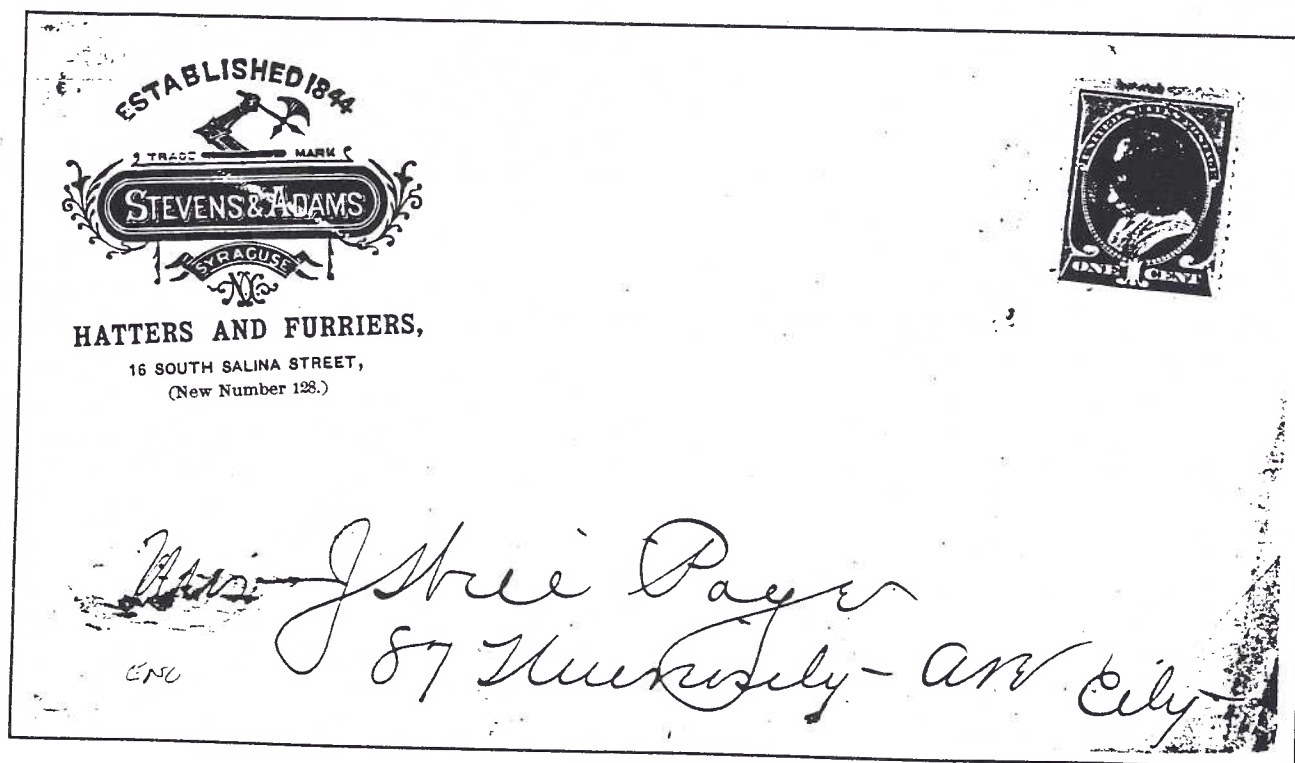 ESTABLISHED 1844
TRADE MARK
STEVENS & ADAMS
SYRACUSE
NY
HATTERS AND FURRIERS,
16 SOUTH SALINA STREET,
(New Number 128.)
UNITED STATES POSTAGE
ONE 1 CENT
J
87 University - Ave City
ENC